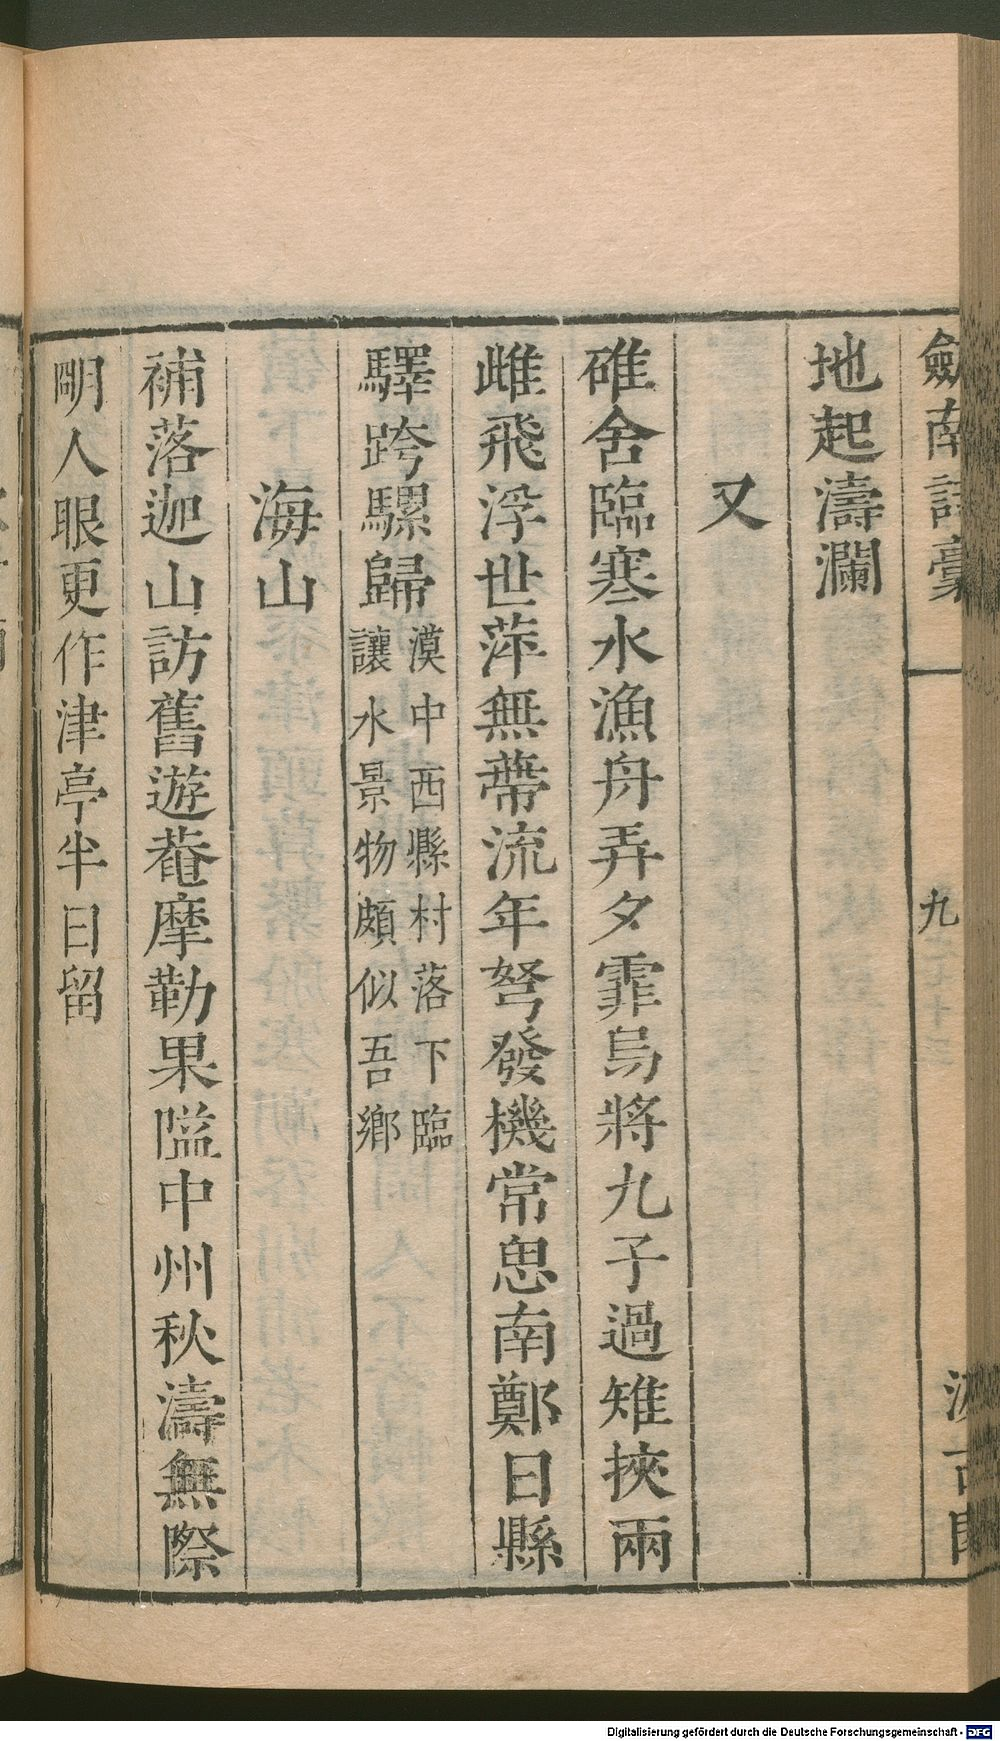 劒南詩稾
九
汲古閣
地起濤瀾
又
碓舍臨寒水漁舟弄夕霏烏將九子過雉挾兩
雌飛浮世萍無蔕流年弩發機常思南鄭日縣
驛跨騾歸漠中西縣村落下臨
讓水景物頗似吾鄉
海山
補落迦山訪舊遊菴摩勒果隘中州秋濤無際
明人眼更作津亭半日留
Digitalisierung gefördert durch die Deutsche Forschungsgemeinschaft - DFG